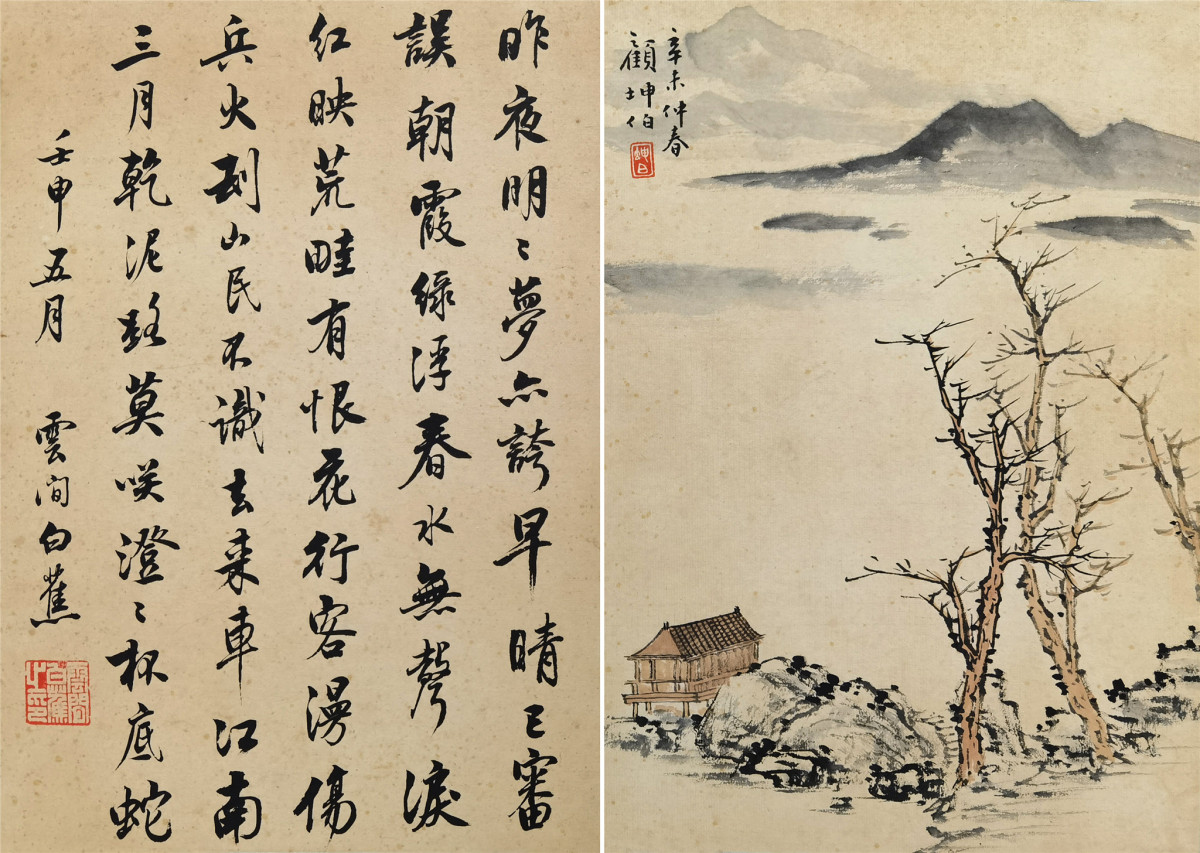 昨夜明〻夢亦誇早晴已審
誤朝霞綠浮春水無聲淚
红映荒畦有恨花行客漫傷
兵火刼山民不識去来車江南
三月乾泥路莫咲澄〻杯底蛇
壬申五月 雲間白蕉
雲間白蕉之印
辛未仲春
顧坤伯